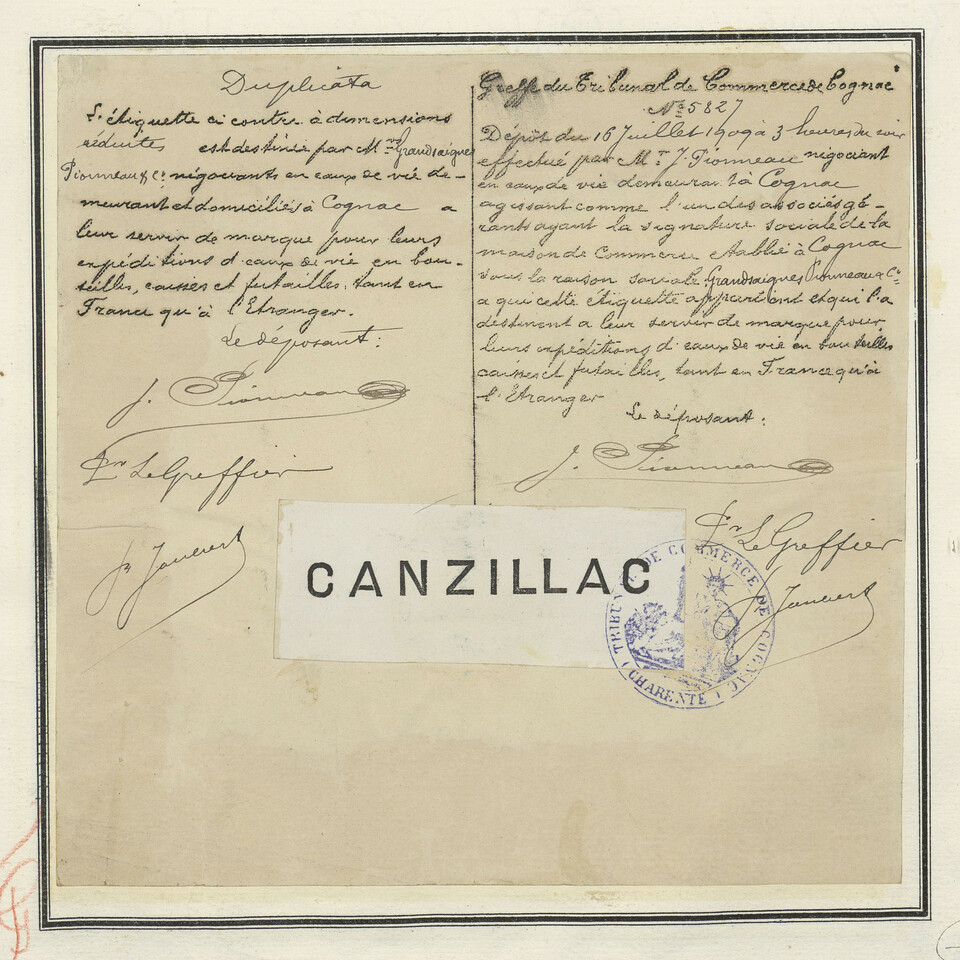 Duplicata
L'étiquette ci contre à dimensions
réduites est destinée par Mrs Grandsaignes
Pionneau & Cie négociants en eaux de vie de-
meurant et domiciliés à Cognac a
leur servir de marque pour leurs
expéditions d'eaux de vie en bou-
teilles, caisses et futailles, tant en
France qu'à l'Etranger.
Le déposant:
J. Pionneau
Pr Le Greffier
Greffe du Tribunal de Commerce de Cognac
No 5827
Dépôt du 16 Juillet 1909 à 3 heures du soir
effectué par Mr J. Pionneau négociant
en eaux de vie demeurant à Cognac
agissant comme l'un des associés gé-
rants ayant la signature sociale de la
maison de Commerce établie à Cognac
sous la raison sociale Grandsaignes Pionneau & Cie
a qui cette étiquette appartient et qui l'a
destinent a leur servir de marque pour
leurs expéditions d'eaux de vie en bouteilles
caisses et futailles, tant en France qu'à
l'Etranger
Le déposant:
J. Pionneau
Pr Le Greffier
CANZILLAC
TRIBUNAL DE COMMERCE DE COGNAC
(CHARENTE)